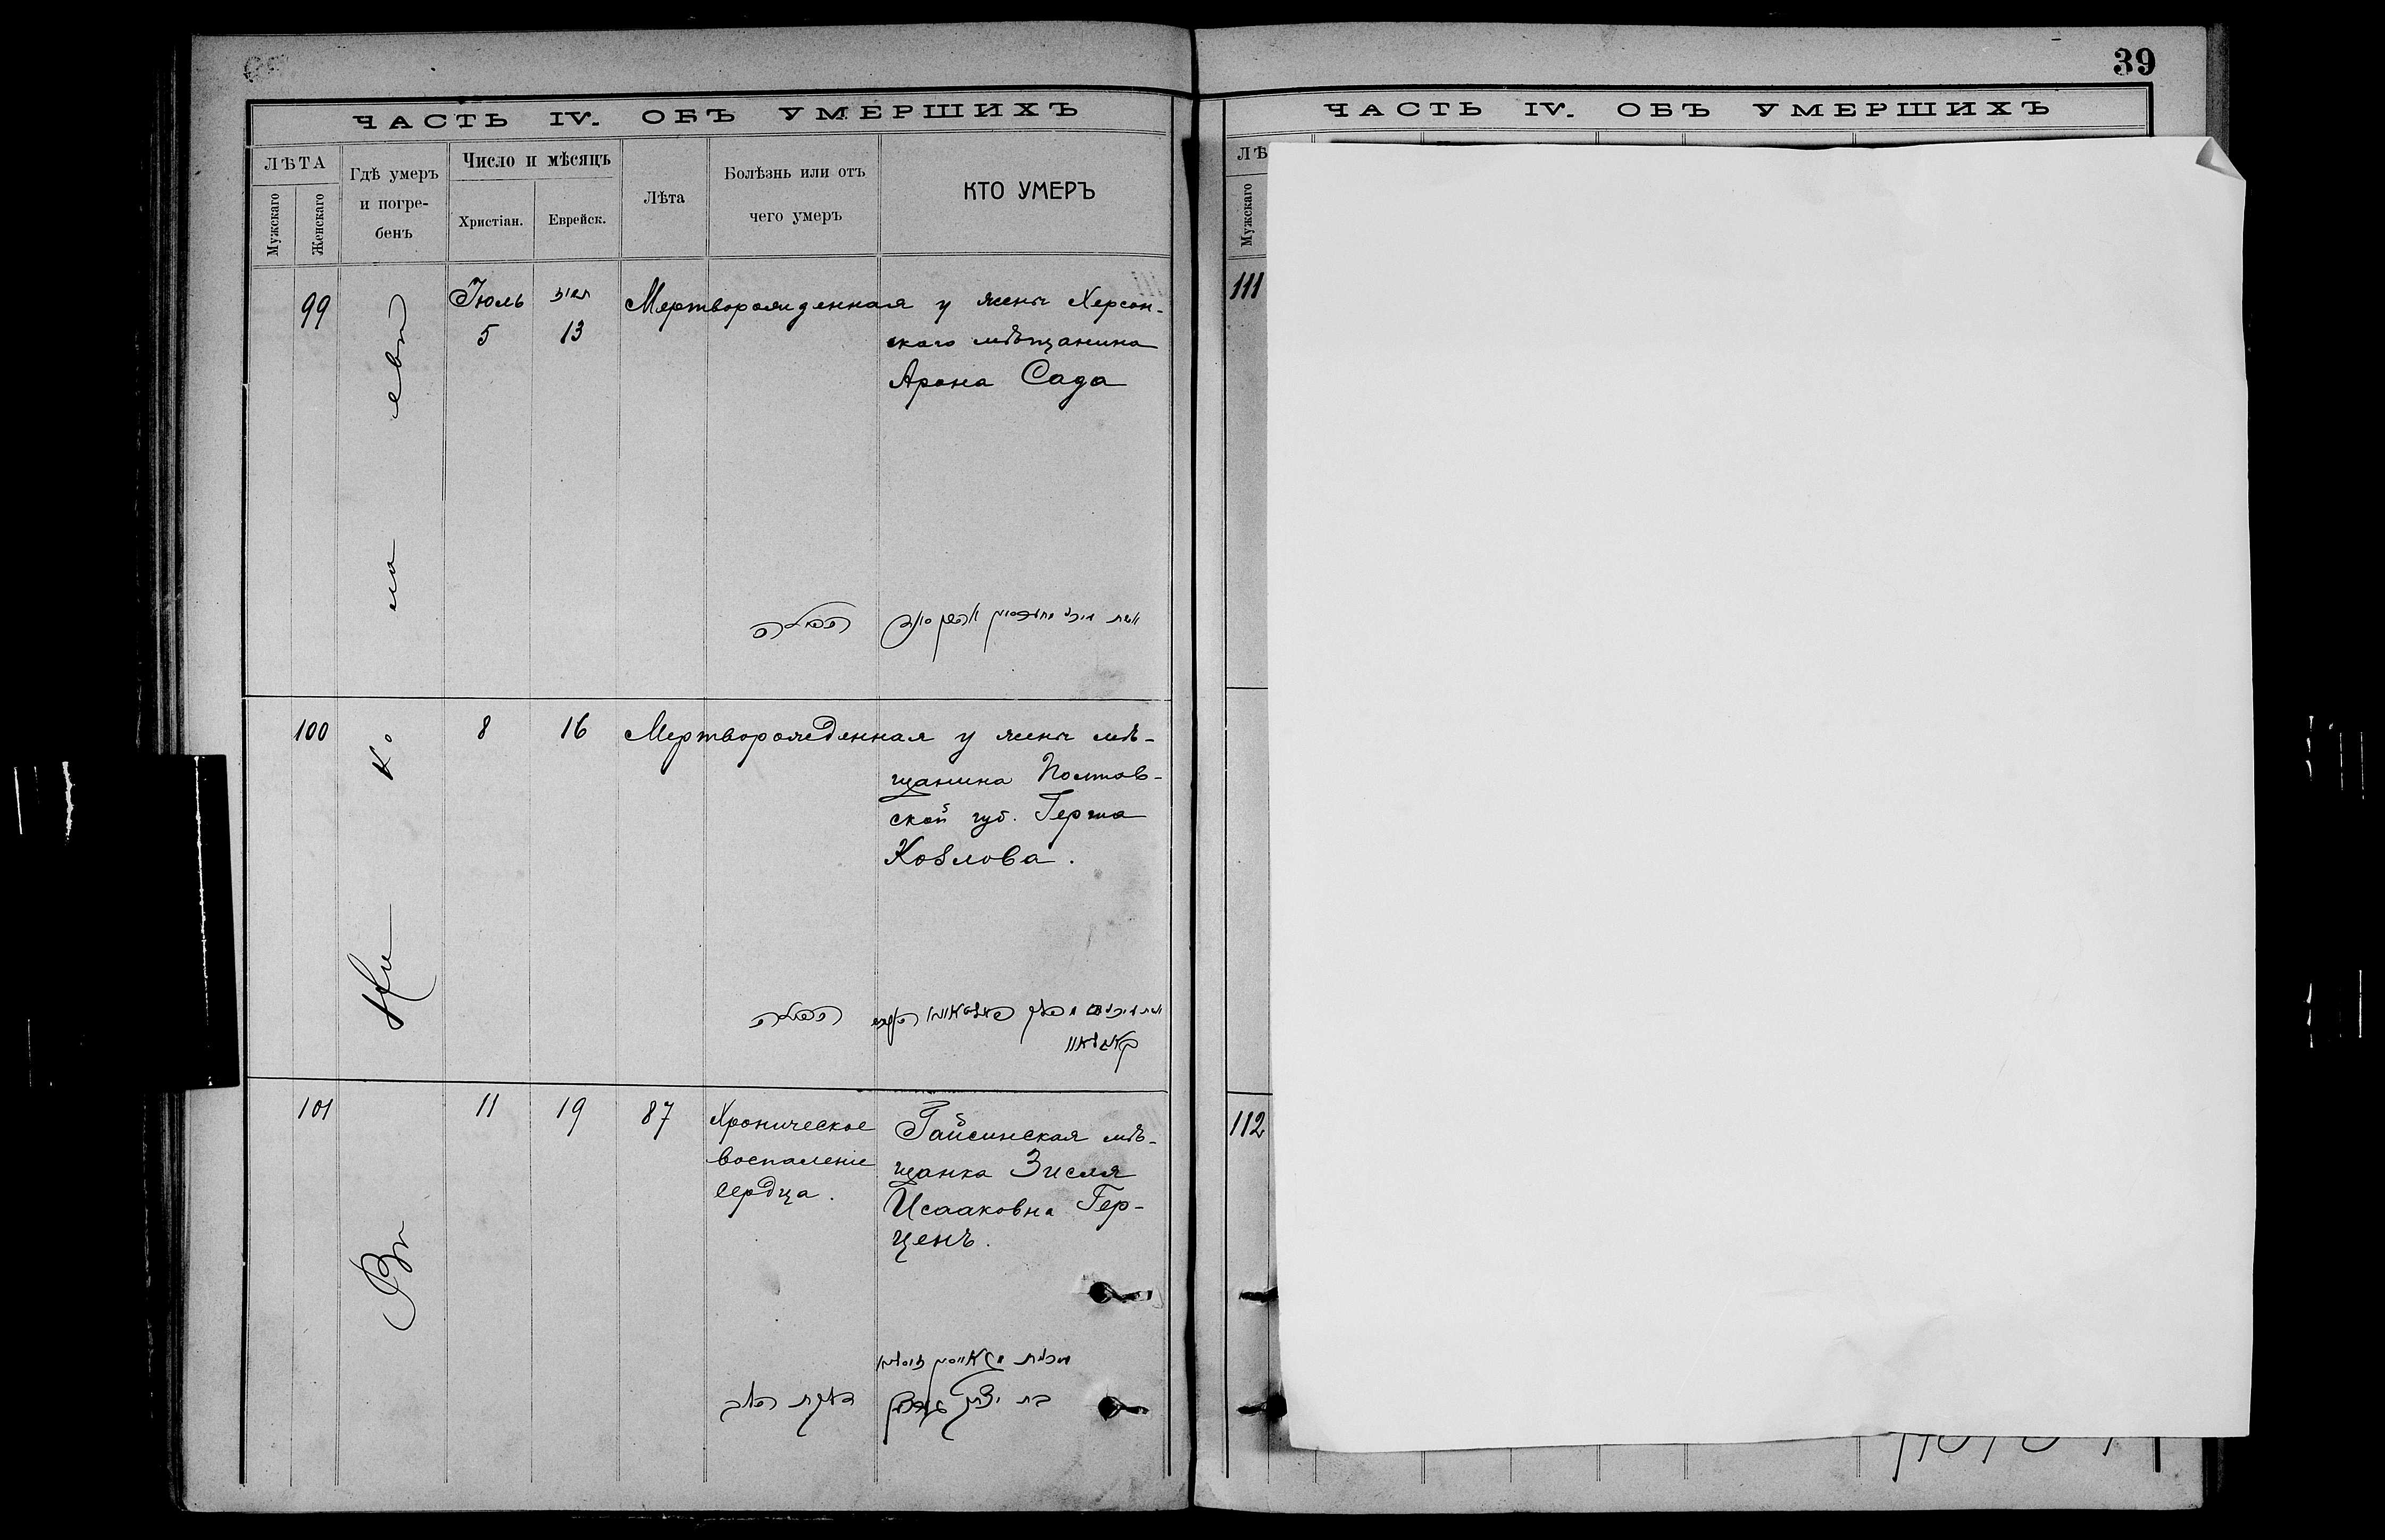 39
ЧАСТЬ IV. ОБЪ УМЕРШИХЪ
ЛѢТА
Мужскаго
Женскаго
Гдѣ умеръ
и погре-
бенъ
Число и мѣсяцъ
Христіан.
Еврейск.
Лѣта
Болѣзнь или отъ
чего умеръ
КТО УМЕРЪ
Въ Николаевѣ
99
Іюль
5
13
Мертворожденная у жены Херсон-
скаго мѣщанина
Арона Сада
100
8
16
Мертворожденная у жены мѣ-
щанина Полтав-
ской губ. Герша
Козлова.
101
11
19
87
Хроническое
воспаленіе
сердца.
Гайсинская мѣ-
щанка Зисля
Исааковна Гер-
ценъ.
בת יצחק
ЧАСТЬ IV. ОБЪ УМЕРШИХЪ
ЛѢ
Мужскаго
111
112